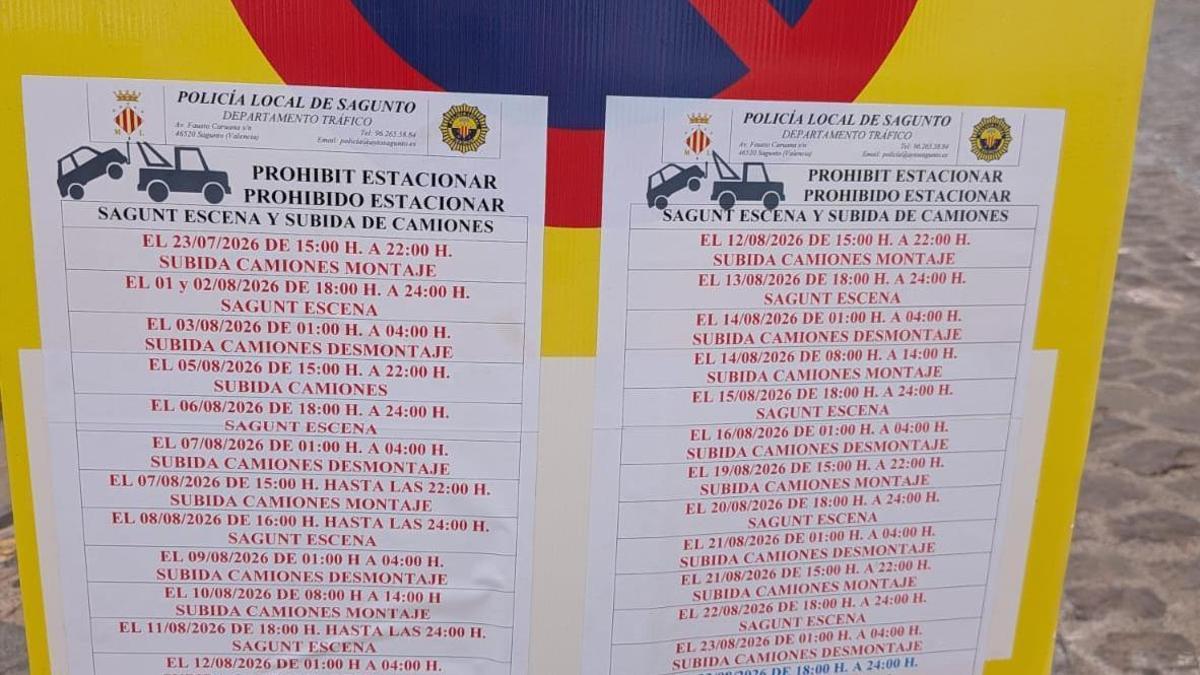 POLICÍA LOCAL DE SAGUNTO
DEPARTAMENTO TRÁFICO
Av. Fausto Caruana s/n
46520 Sagunto (Valencia)
Tel: 96.265.58.84
Email: policia@aytosagunto.es
M L
PROHIBIT ESTACIONAR
PROHIBIDO ESTACIONAR
SAGUNT ESCENA Y SUBIDA DE CAMIONES
EL 23/07/2026 DE 15:00 H. A 22:00 H.
SUBIDA CAMIONES MONTAJE
EL 01 y 02/08/2026 DE 18:00 H. A 24:00 H.
SAGUNT ESCENA
EL 03/08/2026 DE 01:00 H. A 04:00 H.
SUBIDA CAMIONES DESMONTAJE
EL 05/08/2026 DE 15:00 H. A 22:00 H.
SUBIDA CAMIONES
EL 06/08/2026 DE 18:00 H. A 24:00 H.
SAGUNT ESCENA
EL 07/08/2026 DE 01:00 H. A 04:00 H.
SUBIDA CAMIONES DESMONTAJE
EL 07/08/2026 DE 15:00 H. HASTA LAS 22:00 H.
SUBIDA CAMIONES MONTAJE
EL 08/08/2026 DE 16:00 H. HASTA LAS 24:00 H.
SAGUNT ESCENA
EL 09/08/2026 DE 01:00 H A 04:00 H.
SUBIDA CAMIONES DESMONTAJE
EL 10/08/2026 DE 08:00 H A 14:00 H
SUBIDA CAMIONES MONTAJE
EL 11/08/2026 DE 18:00 H. HASTA LAS 24:00 H.
SAGUNT ESCENA
EL 12/08/2026 DE 01:00 H A 04:00 H.
POLICÍA LOCAL DE SAGUNTO
DEPARTAMENTO TRÁFICO
Av. Fausto Caruana s/n
46520 Sagunto (Valencia)
Tel: 96.265.58.84
Email: policia@aytosagunto.es
M L
PROHIBIT ESTACIONAR
PROHIBIDO ESTACIONAR
SAGUNT ESCENA Y SUBIDA DE CAMIONES
EL 12/08/2026 DE 15:00 H. A 22:00 H.
SUBIDA CAMIONES MONTAJE
EL 13/08/2026 DE 18:00 H. A 24:00 H.
SAGUNT ESCENA
EL 14/08/2026 DE 01:00 H. A 04:00 H.
SUBIDA CAMIONES DESMONTAJE
EL 14/08/2026 DE 08:00 H. A 14:00 H.
SUBIDA CAMIONES MONTAJE
EL 15/08/2026 DE 18:00 H. A 24:00 H.
SAGUNT ESCENA
EL 16/08/2026 DE 01:00 H. A 04:00 H.
SUBIDA CAMIONES DESMONTAJE
EL 19/08/2026 DE 15:00 H. A 22:00 H.
SUBIDA CAMIONES MONTAJE
EL 20/08/2026 DE 18:00 H. A 24:00 H.
SAGUNT ESCENA
EL 21/08/2026 DE 01:00 H. A 04:00 H.
SUBIDA CAMIONES DESMONTAJE
EL 21/08/2026 DE 15:00 H. A 22:00 H.
SUBIDA CAMIONES MONTAJE
EL 22/08/2026 DE 18:00 H. A 24:00 H.
SAGUNT ESCENA
EL 23/08/2026 DE 01:00 H. A 04:00 H.
SUBIDA CAMIONES DESMONTAJE
DE 18:00 H. A 24:00 H.